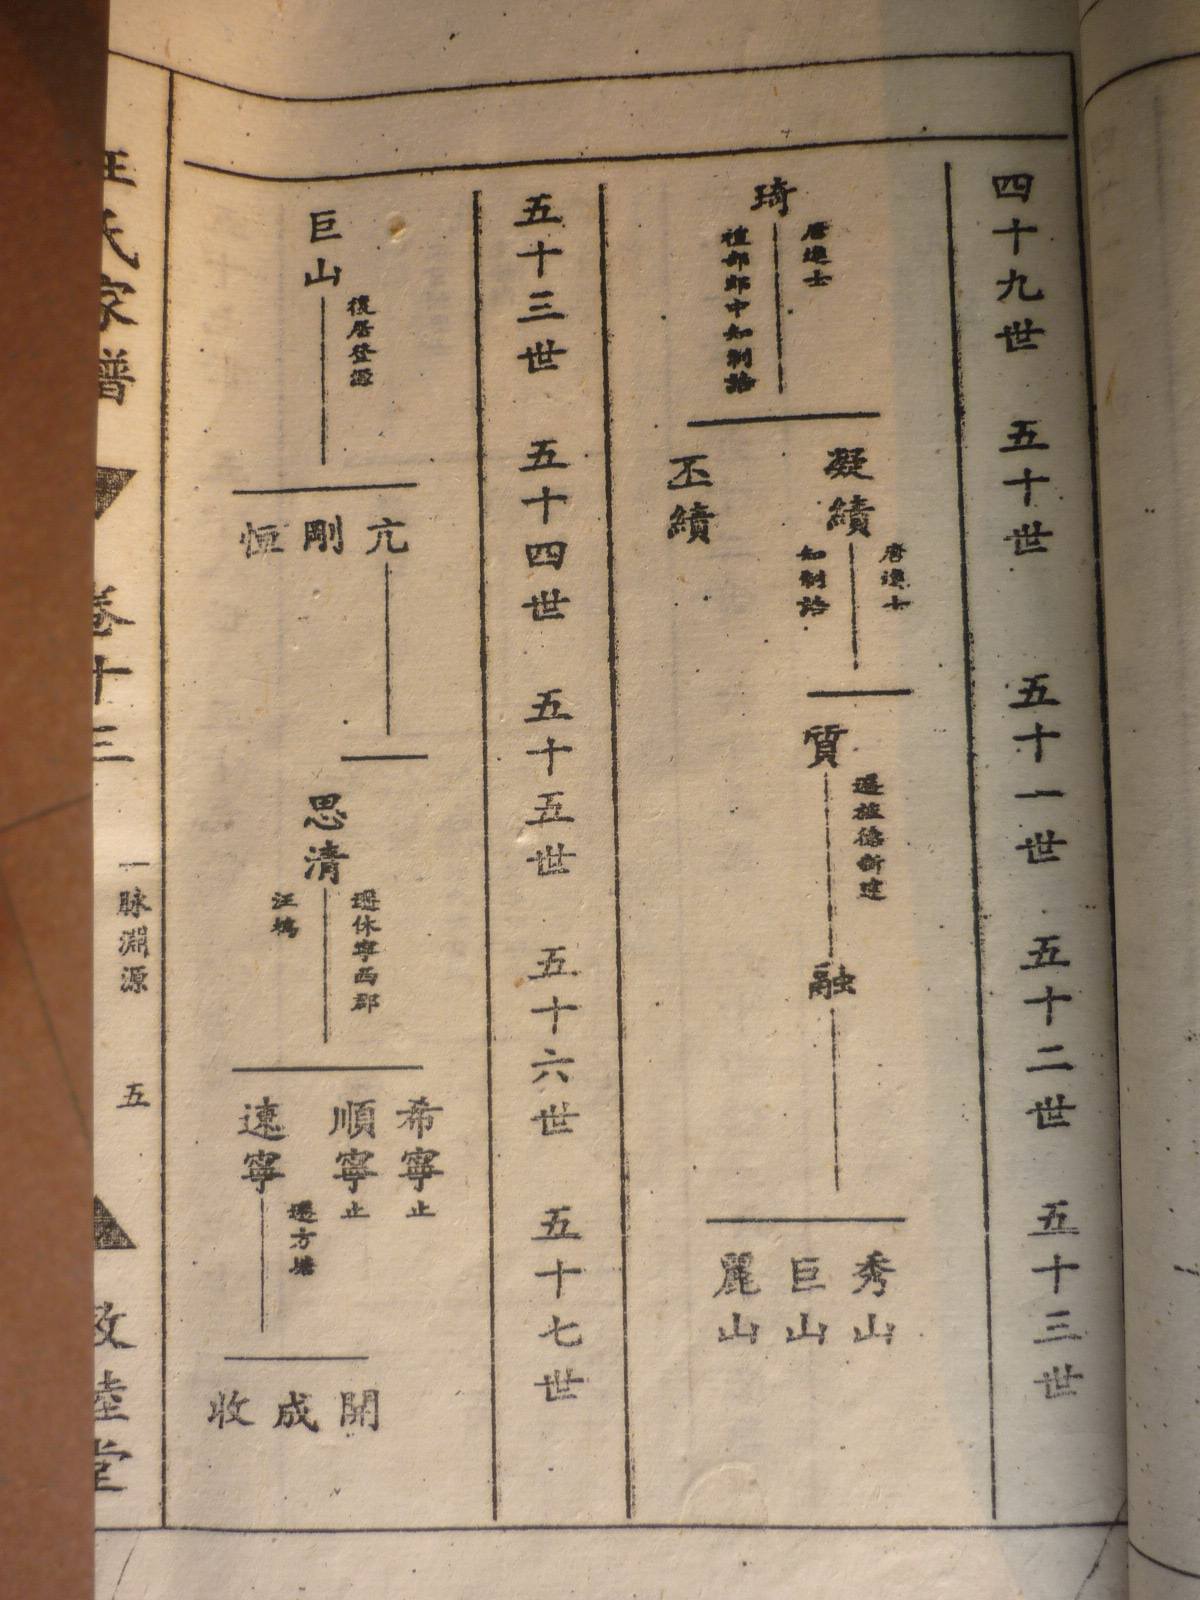 四十九世 五十世 五十一世 五十二世 五十三世
琦
唐進士
禮部郎中知制誥
凝績
唐進士
知制誥
丕績
質
遷旌德新建
融
秀山
巨山
麗山
五十三世 五十四世 五十五世 五十六世 五十七世
巨山
復居登源
亢
剛
恒
思清
遷休寧西郡
汪
希寧止
順寧止
速寧
遷方塘
開
成
收
汪氏家譜 卷十三 一脉淵源 五 敦睦堂